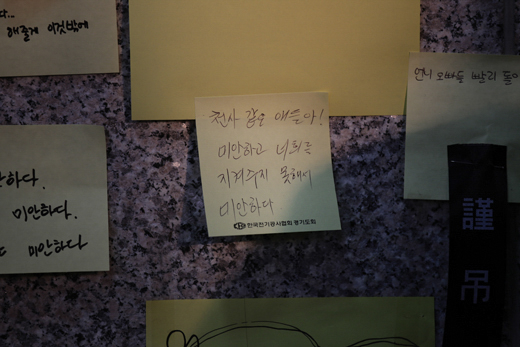 다...
해줄게 이것밖에
천사 같은 애들아!
미안하고 너희를
지켜주지 못해서
미안하다
한국전기공사협회 경기도회
언니 오빠들 빨리 돌아
안하다.
미안하다.
미안하다
謹
弔